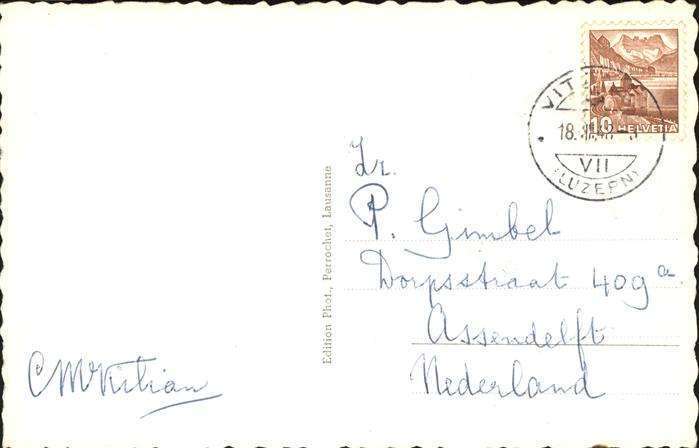 VIT
18. 48
VII
(LUZERN)
10 HELVETIA
Edition Phot., Perrochet, Lausanne
Dr.
P. Gimbel
Dorpsstraat 409a
Assendelft
Nederland
CMKilian